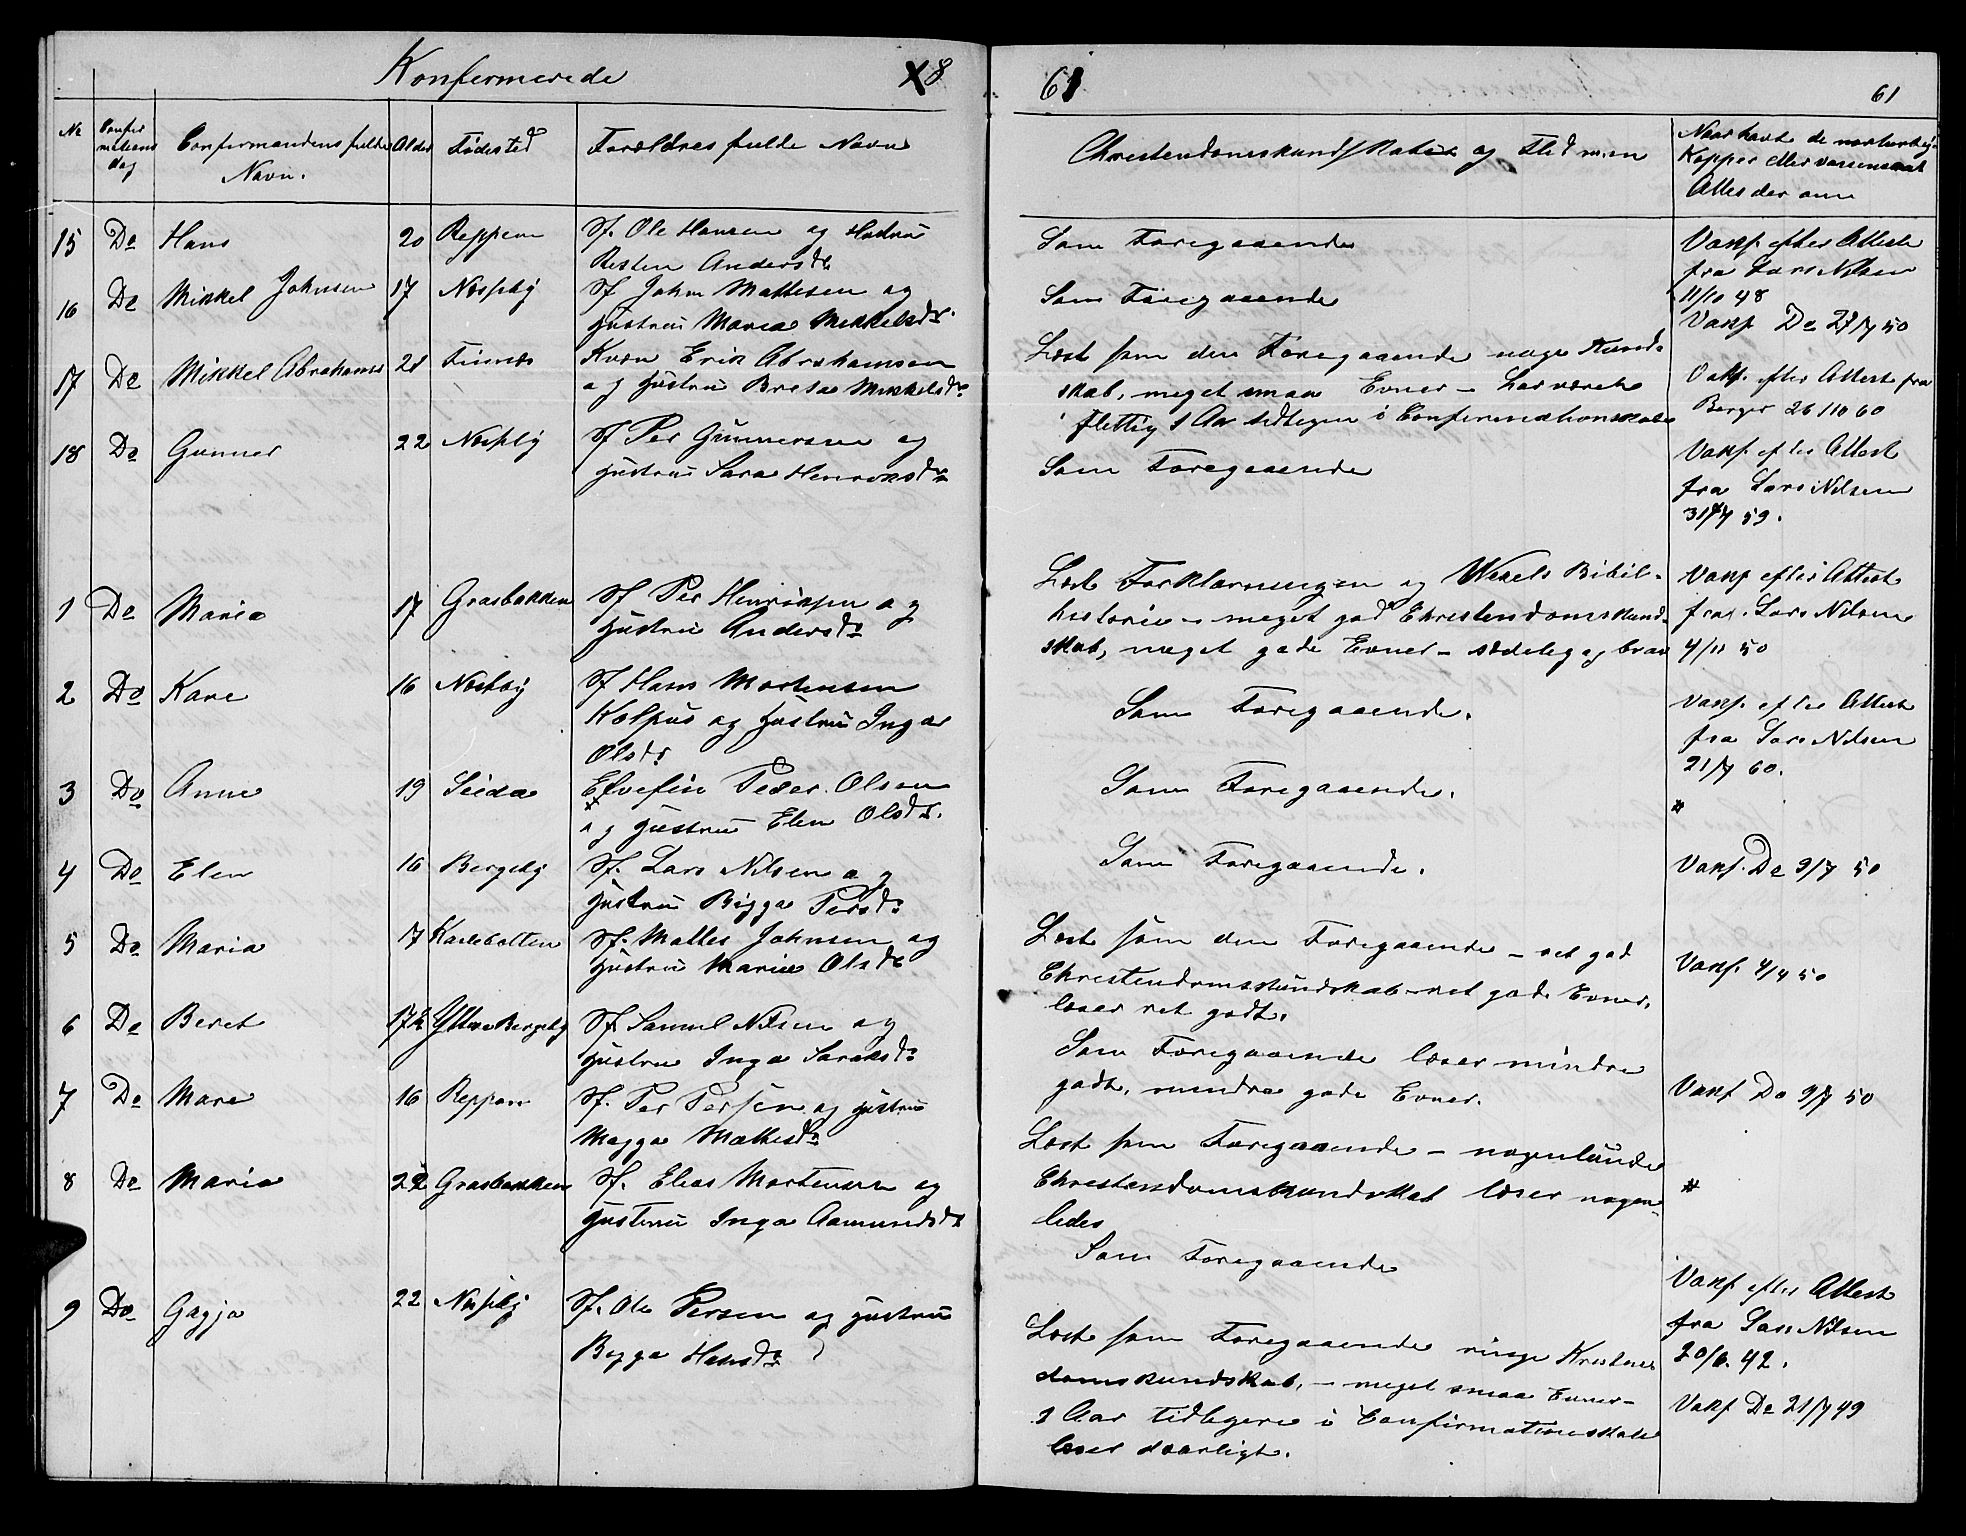 Konfermerede
X8
61
61
No
Confer
mations
dag
Confermandens fulde
Navn.
Alder
Fødested
Forældres fulde Navn
Christendomskundskab og Flid m.m
Naar havt de naturlige
Kopper eller vaccineret
Attest derom
15 Do Hans 20 Reppen Sf. Ole Hansen og Hustru
Andersdr
Som Foregaaende
Vakf. efter Attest
fra Lars Nilsen
11/10 48
16 Do Mikkel Johnsen 17 Nesseby Sf John Mathisen og
Hustru Maria Mikkelsdr.
Som Foregaaende
Vakf Do 27/7 50
17 Do Mikkel Abrahams 21 Kvæn Erik Abrahamsen
og Hustru Breta Mikkelsdr.
Læst som den Foregaaende noge Kund-
skab, meget smaa Evner - har været
flittig 1 Aar tidligere i Confermationsskole
Vakf. efter Attest fra
Berger 26/10 60
18 Do Gunner 22 Nesseby Sf Per Gunnersen og
Hustru Sara Henriksdr.
Som Foregaaende
Vakf. efter Attest
fra Lars Nilsen
31/7 59.
1 Do Maria 17 Grasbakken Sf Per Henriksen og
Hustru Andersdr
Læst Forklaringen og Wexels Bibel-
historie - meget god Christendomskund-
skab, meget gode Evner - sædelig og brav
Vakf efter Attest
fra Lars Nilsen
4/11 50
2 Do Kare 16 Nesseby Sf Hans Mortensen
Kolpus og Hustru Inger
Olsdr
Som Foregaaende.
Vakf. efter Attest
fra Lars Nilsen
21/7 60.
3 Do Anne 19 Seida Elvefin Peder Olsen
og Hustru Elen Olsdr.
Som Foregaaende.
4 Do Elen 16 Bergeby Sf. Lars Nilsen og
Hustru Bigga Persdr
Som Foregaaende.
Vakf. Do 9/7 50
5 Do Maria 17 Karlebotten Sf. Mathis Johnsen og
Hustru Maria Olsdr
Læst som den Foregaaende - ret god
Christendomskundskab - ret gode Evner,
læser ret godt.
Vakf. 4/4 50
6 Do Beret 17½ Yttre Bergeby Sf. Samuel Nilsen og
Hustru Inga Saraksdr
Som Foregaaende læser mindre
godt, mindre gode Evner.
7 Do Mare 16 Reppen Sf. Per Persen og Hustru
Magga Mathisdr
Vakf Do 9/7 50
8 Do Maria 22 Grasbakken Sf. Elias Mortensen og
Hustru Inga Aamundsdr
Læst som Foregaaende - nogenlunde
Christendomskundskab læser nogen-
ledes
Som Foregaaende
9 Do Gagja 22 Nesseby Sf. Ole Persen og Hustru
Bigga Hansdr
Læst som Foregaaende ringe Kristen-
domskundskab, - meget smaa Evner -
2 Aar tidligere i Confirmationsskole
læser daarligt.
Vakf efter Attest
fra Lars Nilsen
20/6. 42.
Vakf Do 21/7 49